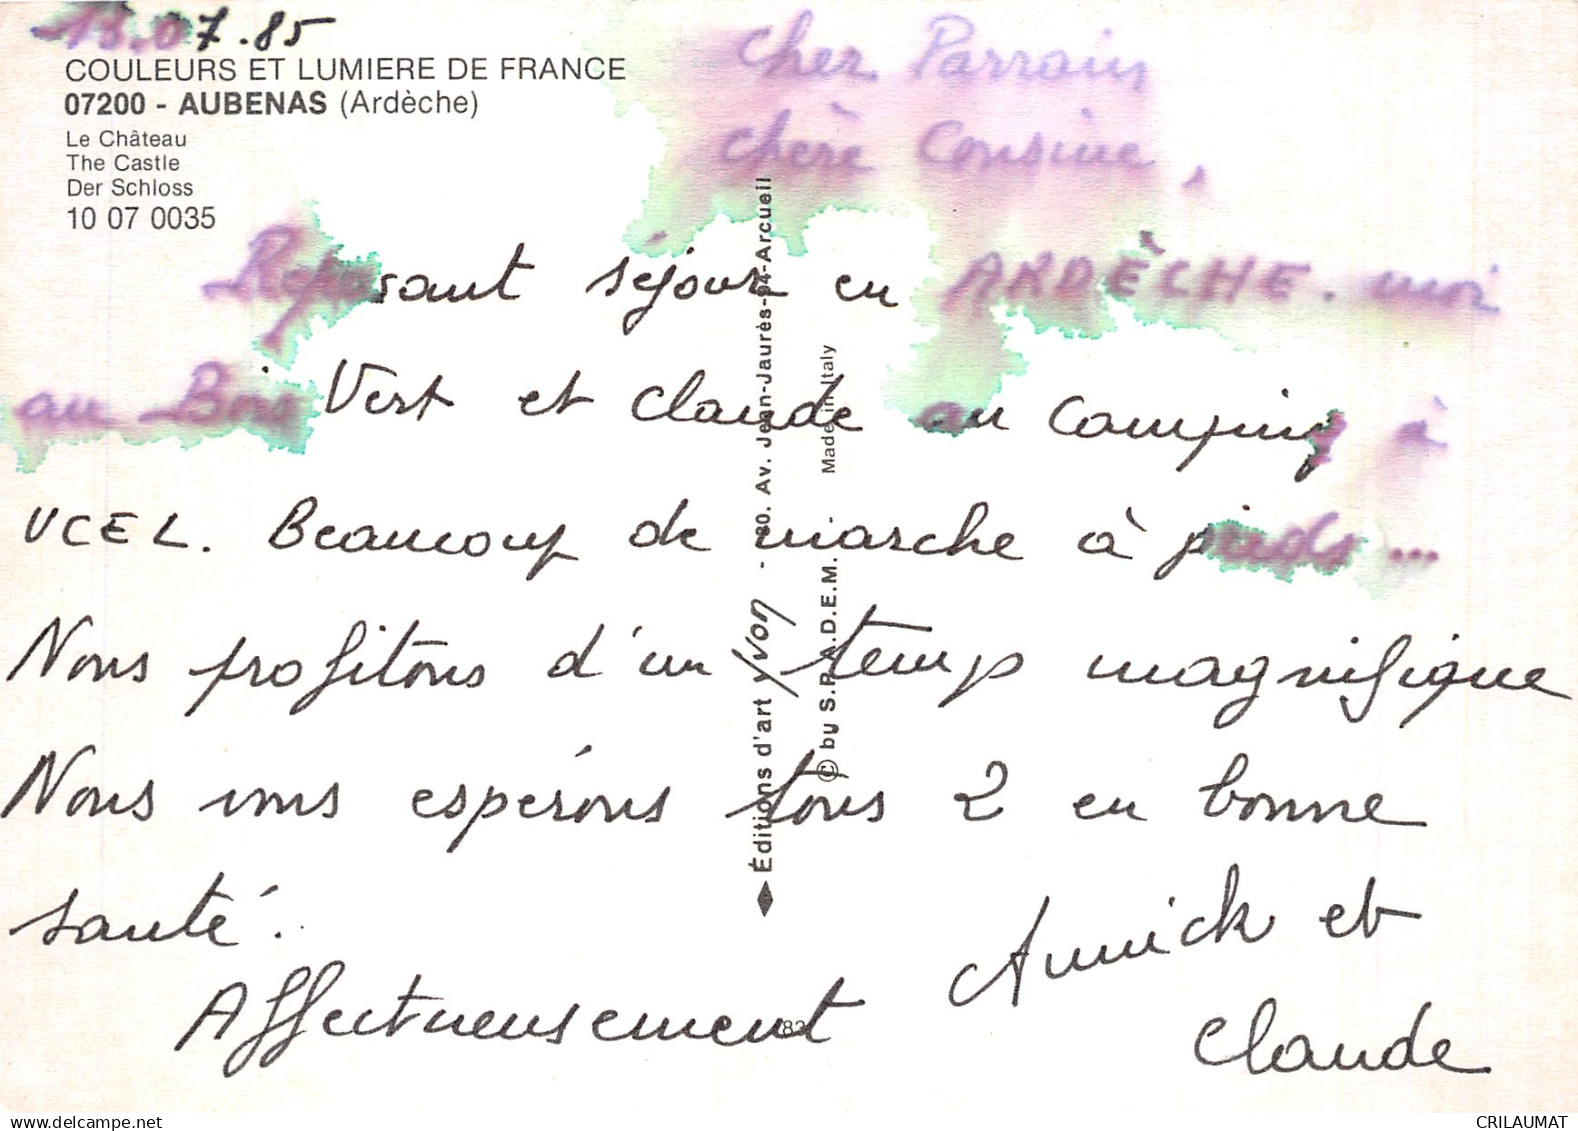 13.07.85
COULEURS ET LUMIERE DE FRANCE
07200 - AUBENAS (Ardèche)
Le Château
The Castle
Der Schloss
10 07 0035
Cher Parrain
chère Cousine,
Reposant séjour en ARDÈCHE. moi
au Bois Vert et Claude au Camping à
UCEL. Beaucoup de marche à pieds...
Nous profitons d'un temps magnifique
Nous vous espérons tous 2 en bonne
santé.
Affectueusement
Annick et
Claude
Éditions d'art YVON - 80. Av. Jean-Jaurès-94-Arcueil
© by S.P.A.D.E.M. Made in Italy
82
CRILAUMAT